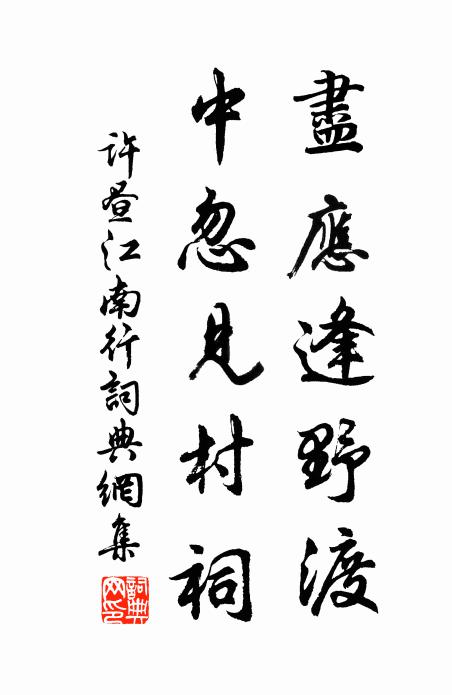 盡應逢野渡
中忽見村祠
許晝江南行詞典網集
詞典網印